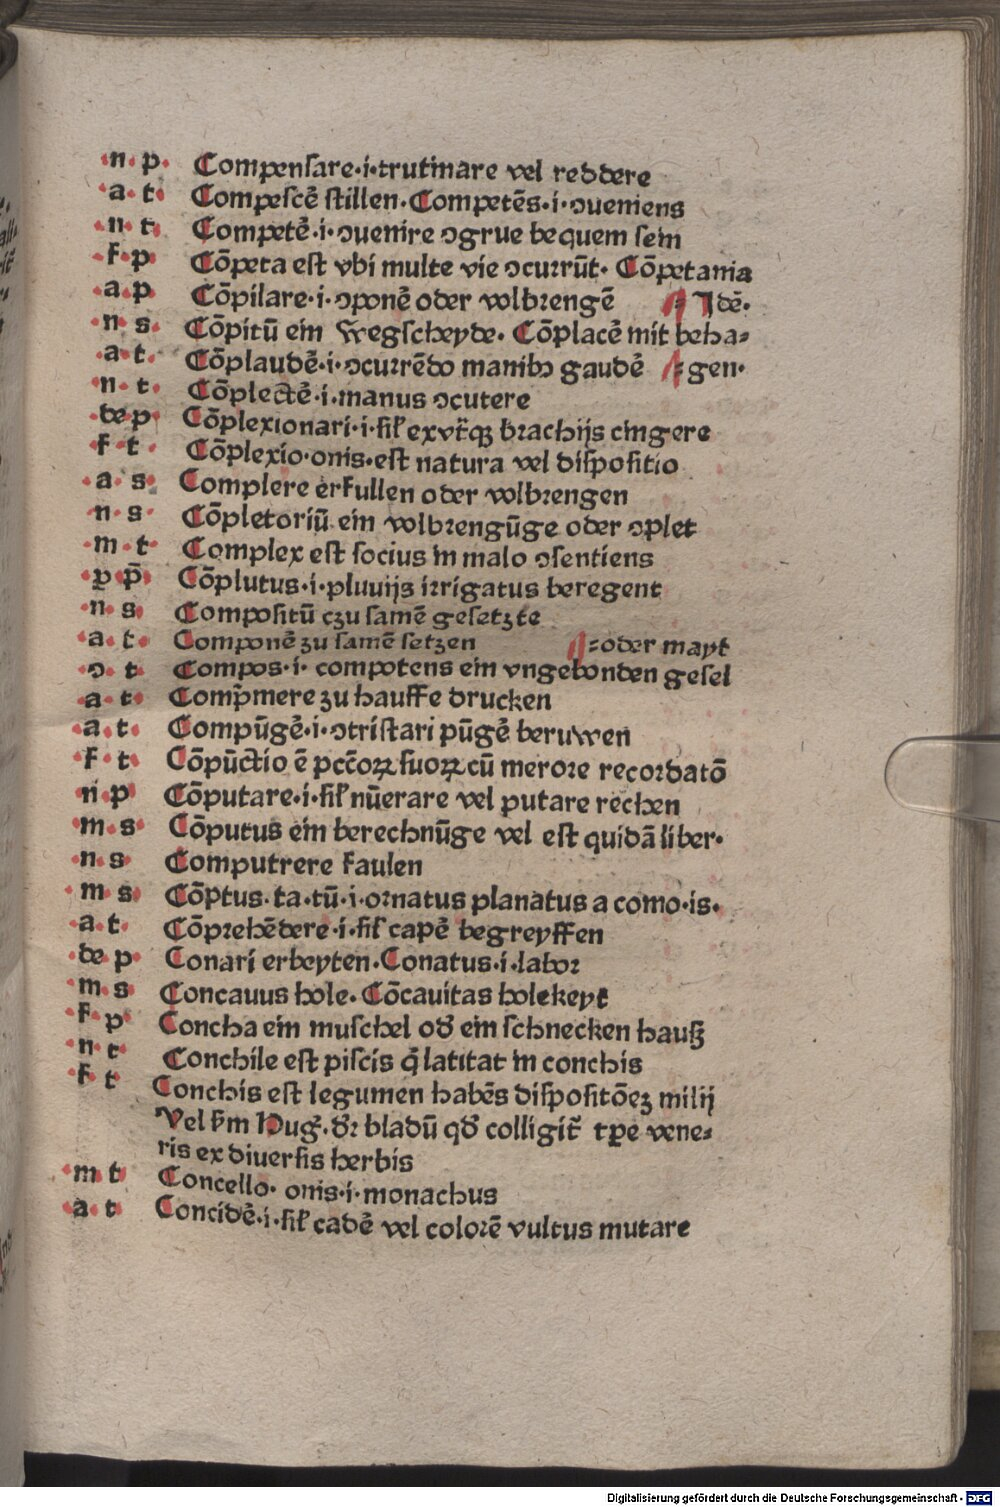 ·n·p· Compensare·i·trutinare vel reddere
·a·t· Compescē stillen·Competēs·i·ↄueniens
·n·t· Competē·i·ↄuenire ↄgrue bequem sein
·f·p· Cōpeta est vbi multe vie ↄcurrūt· Cōpetania
·a·p· Cōpilare·i·ↄponē oder volbrengē Idē·
·n·s· Cōpitū ein Wegscheyde· Cōplacē mit beha⸗
·a·t· Cōplaudē·i·ↄcurrēdo manibꝰ gaudē ⸗gen·
·n·t· Cōplectē·i·manus ↄcutere
·de p· Cōplexionari·i·sil̓ ex vt̄qꝫ brachijs cingere
·f·t· Cōplexio·onis·est natura vel dispositio
·a·s· Complere erfullen oder volbrengen
·n·s· Cōpletoriū ein volbrengūge oder ↄplet
·m·t· Complex est socius in malo ↄsentiens
·ꝑ·p̄· Cōplutus·i·pluuijs irrigatus beregent
·n·s· Compositū czu samē gesetzte
·a·t· Componē zu samē setzen ⸗oder mayt
·ↄ·t· Compos·i·compotens ein vngebonden gesel
·a·t· Comp̄mere zu hauffe drucken
·a·t· Compūgē·i·ↄtristari pūgē beruwen
·f·t· Cōpūctio ē pctōꝝ suoꝝ cū merore recordatō
·n·p· Cōputare·i·sil̓ nūerare vel putare rechen
·m·s· Cōputus ein berechnūge vel est quidā liber·
·n·s· Computrere faulen
·m·s· Cōptus·ta·tū·i·ornatus planatus a como·is·
·a·t· Cōprehēdere·i·sil̓ capē begreyffen
·de p· Conari erbeyten·Conatus·i·labor
·m·s· Concauus hole· Cōcauitas holekeyt
·f·p· Concha ein muschel od̓ ein schnecken hauß
·n·t· Conchile est piscis q̇ latitat in conchis
·f·t· Conchis est legumen habēs dispositōeꝫ milij
Vel s̄m Hug̓·d̓r bladū qd̓ colligit̄ tꝑe vene⸗
ris ex diuersis herbis
·m·t· Concello· onis·i·monachus
·a·t· Concidē·i·sil̓ cadē vel colorē vultus mutare
Digitalisierung gefördert durch die Deutsche Forschungsgemeinschaft - DFG